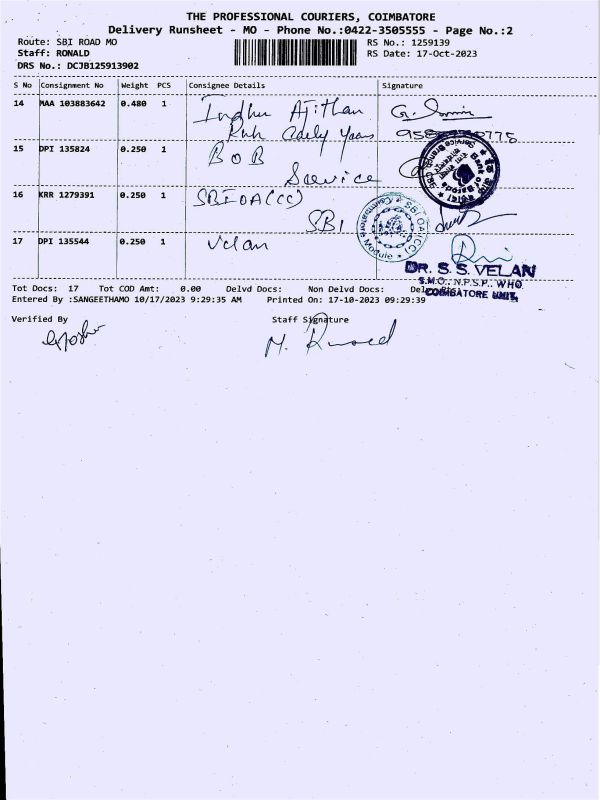 THE PROFESSIONAL COURIERS, COIMBATORE
Delivery Runsheet - MO - Phone No.:0422-3505555 - Page No.:2
Route: SBI ROAD MO
RS No.: 1259139
Staff: RONALD
RS Date: 17-Oct-2023
DRS No.: DCJB125913902
S No Consignment No Weight PCS Consignee Details Signature
14 MAA 103883642 0.480 1 Indhu Ajithan
15 DPI 135824 0.250 1 BOB
Service
16 KRR 1279391 0.250 1 SBIOA(CC)
SBI
SBI OA(CC)
Coimbatore Module
17 DPI 135544 0.250 1 Velan
DR. S. S. VELAN
S.M.O., N.P.S.P., WHO
COIMBATORE UNIT,
Tot Docs: 17 Tot COD Amt: 0.00 Delvd Docs: Non Delvd Docs:
Entered By :SANGEETHAMO 10/17/2023 9:29:35 AM Printed On: 17-10-2023 09:29:39
Verified By
Staff Signature